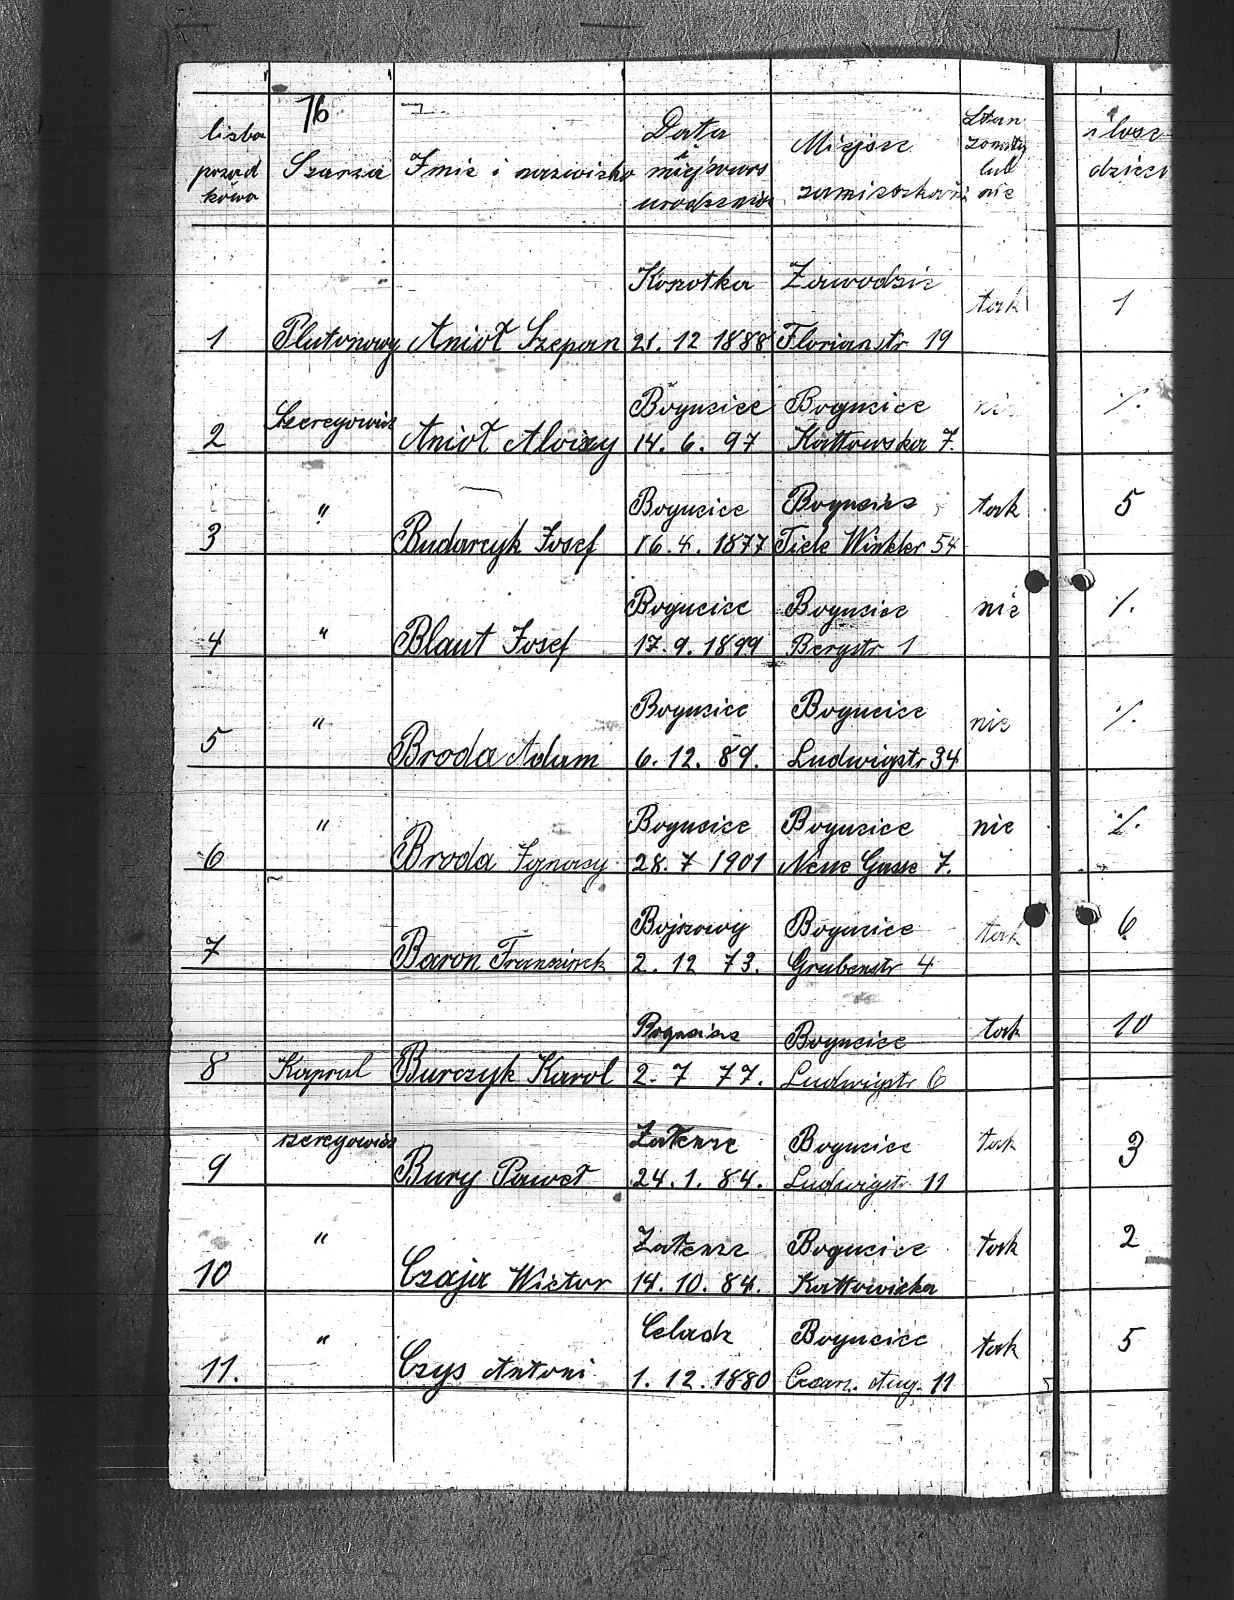 76
liszba porzad kowa
Szarza
Imie i nazwisko
Data i miejscows urodzenia
Miejsce zamieszkani
Stan zonaty lub nie
ilosc dzieci
Korotka Zawodzie tak 1
1 Plutonowy Anioł Szepan 21. 12 1888 Florianstr 19
Szeregowiec Bogucice Bogucice nie %.
2 Anioł Aloizy 14. 6. 97 Kattowska 7.
" Bogucice Bogucice tak 5
3 Budarcyk Josef 16. 4. 1877 Tiele Winkler 54
" Bogucice Bogucice nie %.
4 Blaut Josef 17. 9. 1899 Bergstr 1
" Bogucice Bogucice nie %.
5 Broda Adam 6. 12. 89. Ludwigstr 34
" Bogucice Bogucice nie %.
6 Broda Ignacy 28. 7 1901 Neue Gasse 7.
Bojszowy Bogucice tak 6
7 Baron Franzisek 2. 12 73. Grubenstr 4
Bogucice Bogucice tak 10
8 Kapral Burczyk Karol 2. 7 77. Ludwigstr 6
szeregowiec Załenze Bogucice tak 3
9 Bury Paweł 24. 1. 84. Ludwigstr 11
" Załenze Bogucice tak 2
10 Czaja Wictor 14. 10. 84. Kattowicka
" Celadz Bogucice tak 5
11. Czys Antoni 1. 12. 1880 Czarn. Aug. 11